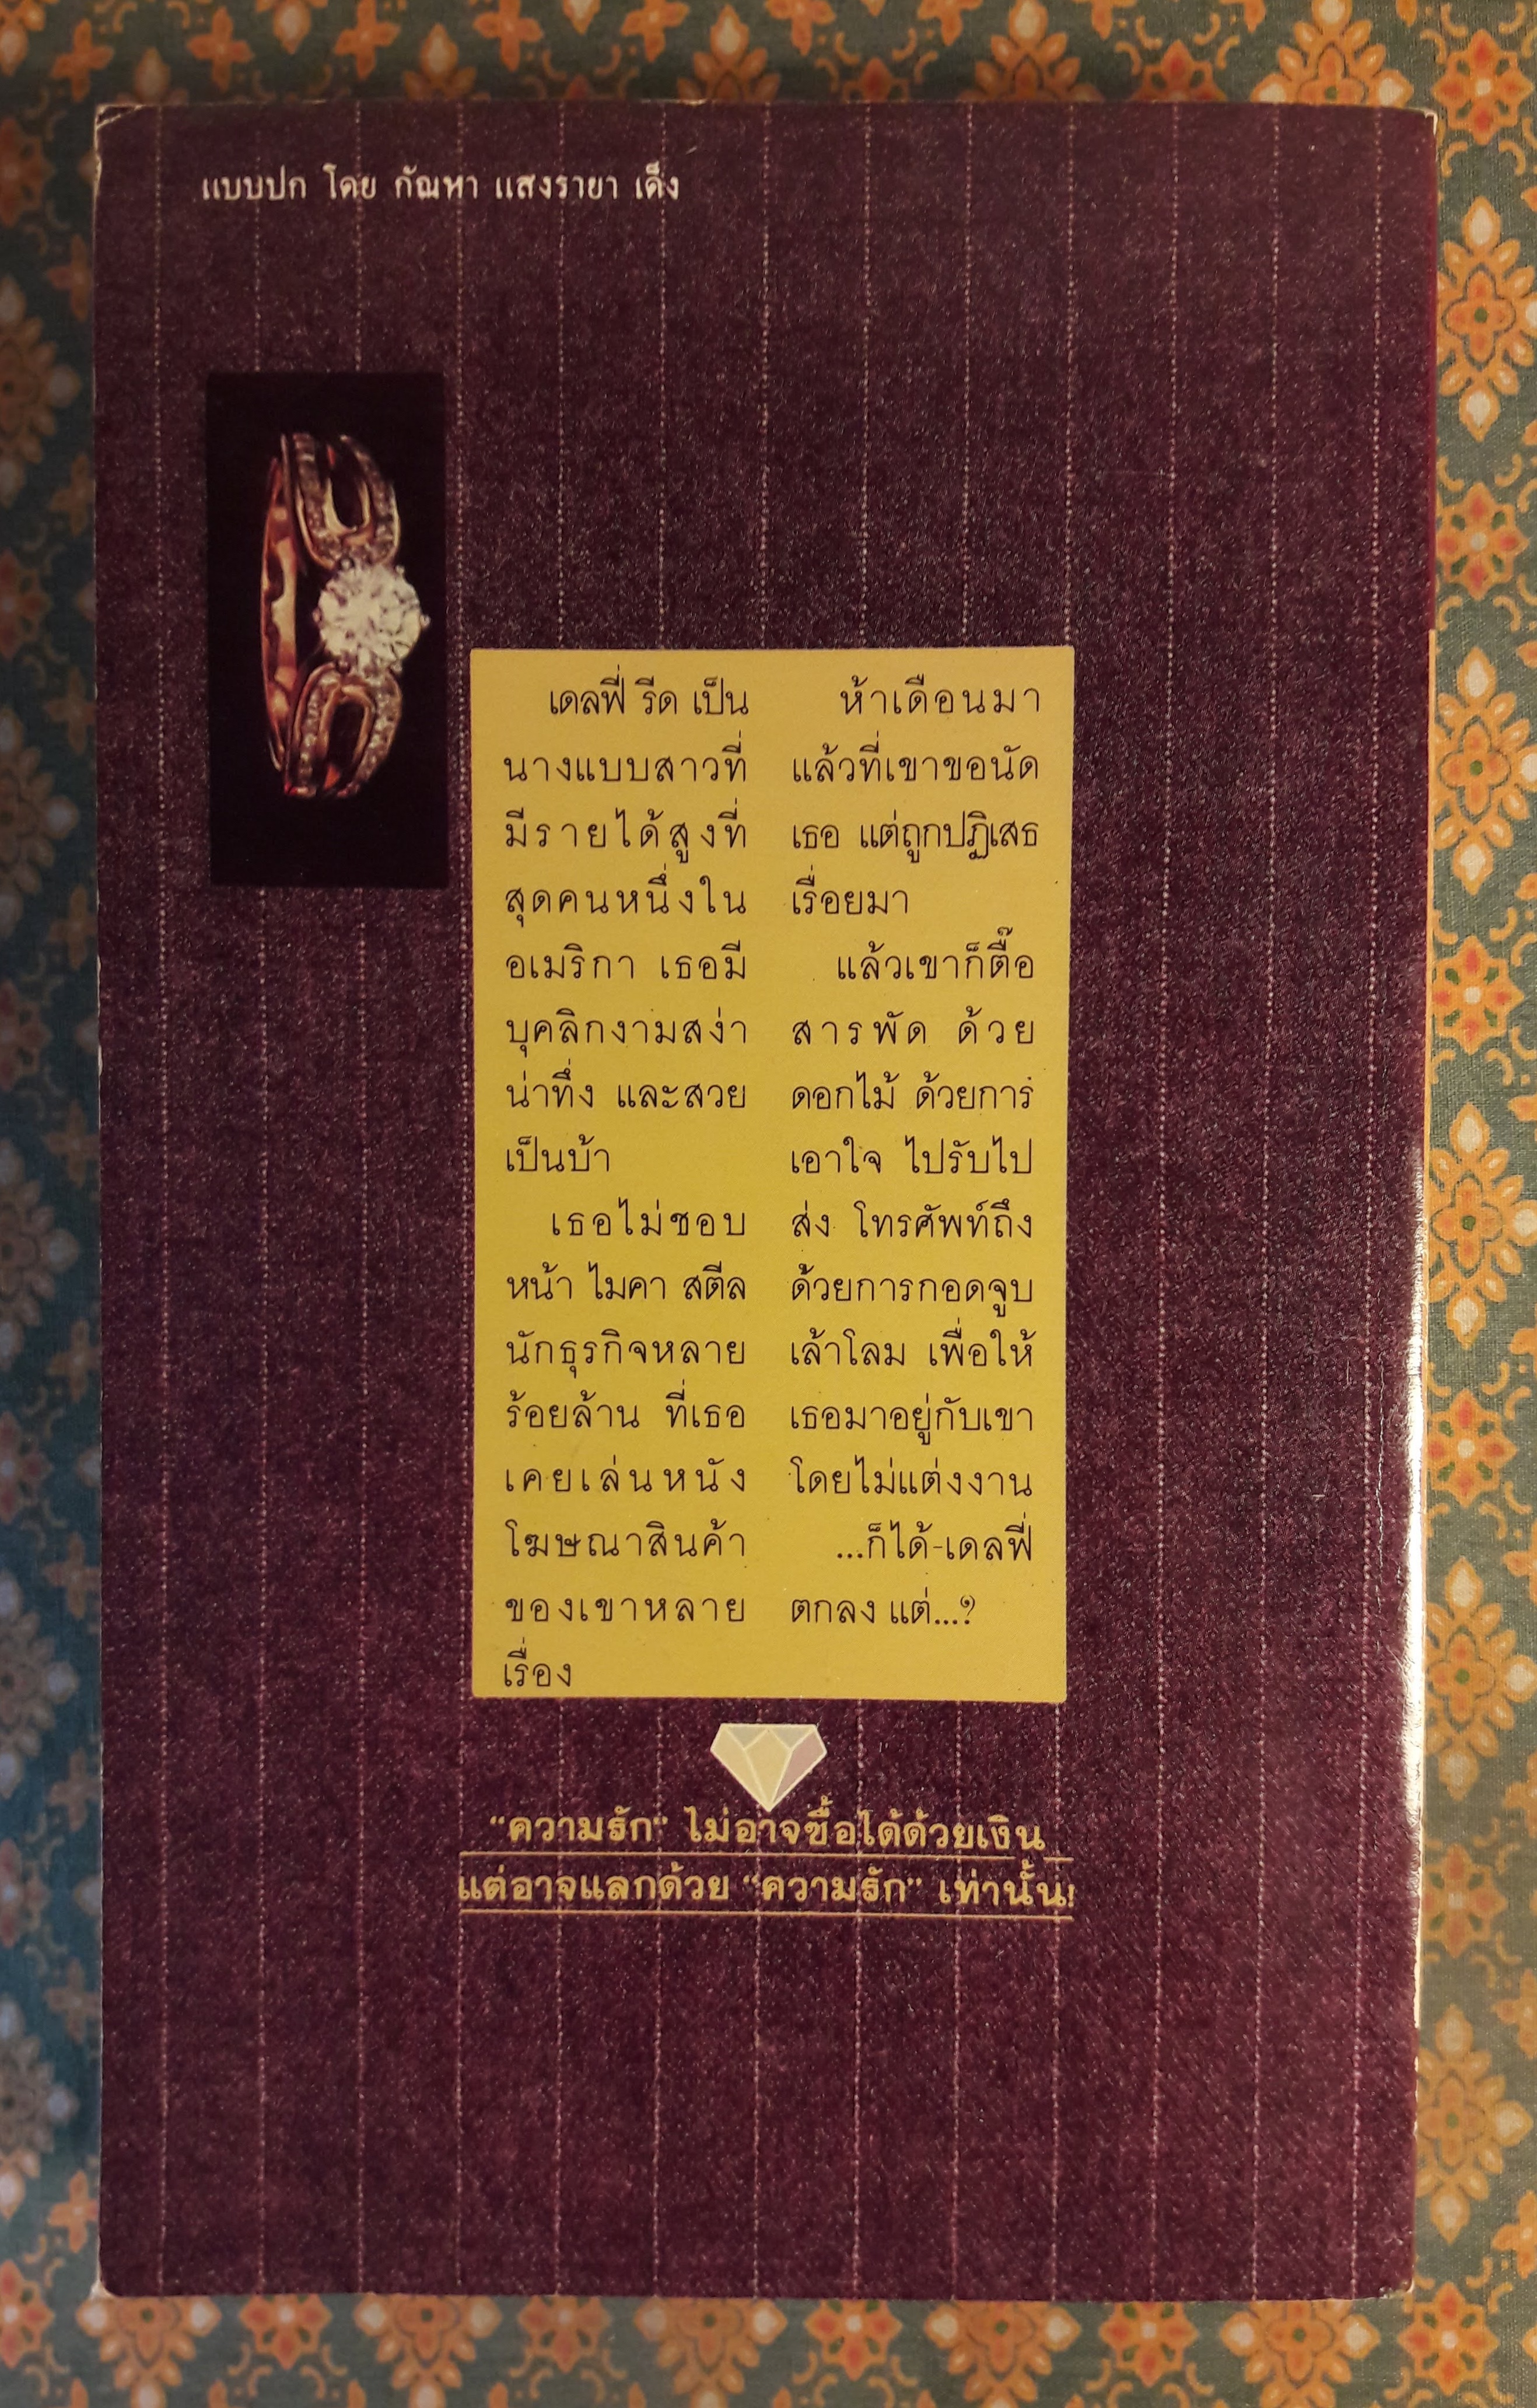 แบบปก โดย กัณหา แสงรายา เด็ง
เดลฟี่ รีด เป็น
นางแบบสาวที่
มีรายได้สูงที่
สุดคนหนึ่งใน
อเมริกา เธอมี
บุคลิกงามสง่า
น่าทึ่ง และสวย
เป็นบ้า
เธอไม่ชอบ
หน้า ไมคา สตีล
นักธุรกิจหลาย
ร้อยล้าน ที่เธอ
เคยเล่นหนัง
โฆษณาสินค้า
ของเขาหลาย
เรื่อง
ห้าเดือนมา
แล้วที่เขาขอนัด
เธอ แต่ถูกปฏิเสธ
เรื่อยมา
แล้วเขาก็ตื๊อ
สารพัด ด้วย
ดอกไม้ ด้วยการ
เอาใจ ไปรับไป
ส่ง โทรศัพท์ถึง
ด้วยการกอดจูบ
เล้าโลม เพื่อให้
เธอมาอยู่กับเขา
โดยไม่แต่งงาน
...ก็ได้-เดลฟี่
ตกลง แต่...?
“ความรัก” ไม่อาจซื้อได้ด้วยเงิน
แต่อาจแลกด้วย “ความรัก” เท่านั้น!